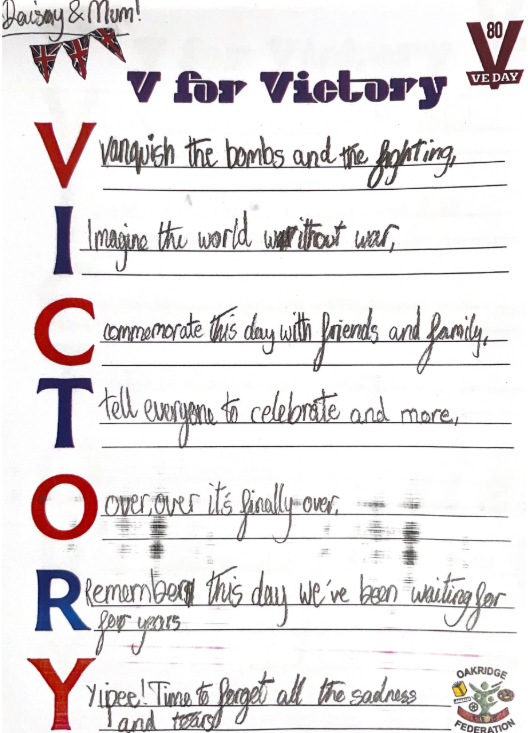 Daisay & Mum!
80
VE DAY
V for Victory
V vanquish the bombs and the fighting,
I Imagine the world without war,
C commemorate this day with friends and family,
T tell everyone to celebrate and more,
O over, over it's finally over,
R Remember this day we've been waiting for
for years
Y Yipee! Time to forget all the sadness
and tears
OAKRIDGE
FEDERATION